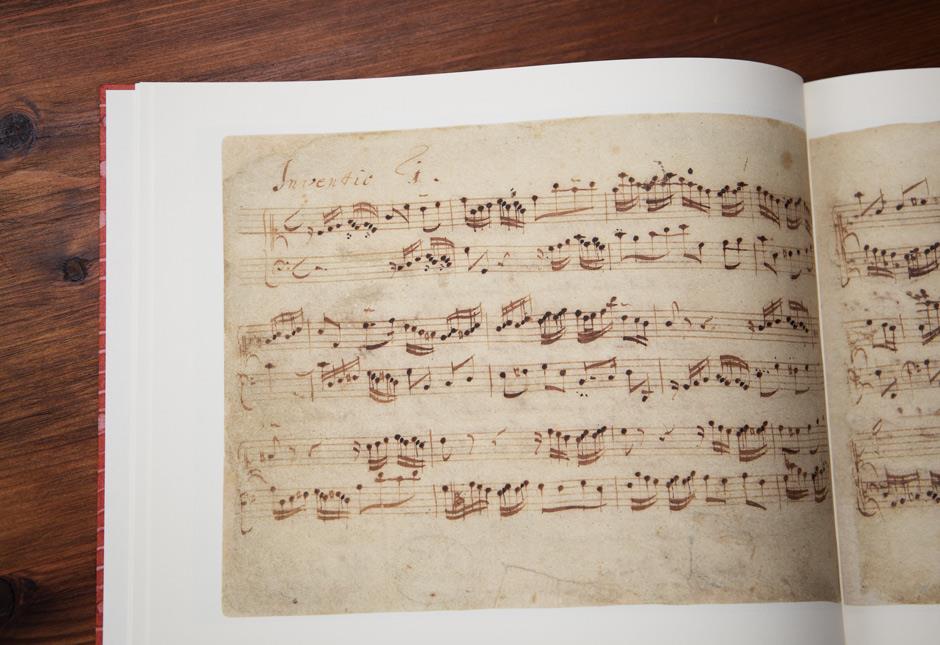 Inventio 1.